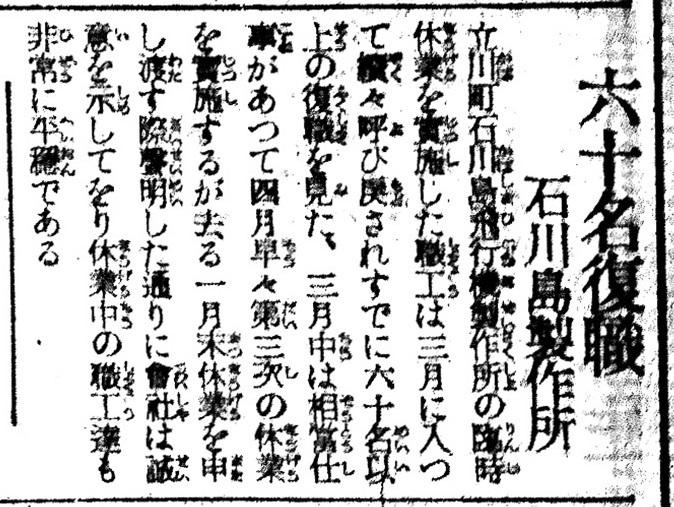 六十名復職
石川島製作所
立川町石川島飛行機製作所の臨時
休業を實施した職工は三月に入つ
て續々呼び戻されすでに六十名以
上の復職を見た、三月中は相當仕
事があつて四月早々第三次の休業
を實施するが去る一月末休業を申
し渡す際聲明した通りに會社は誠
意を示してをり休業中の職工達も
非常に平穩である